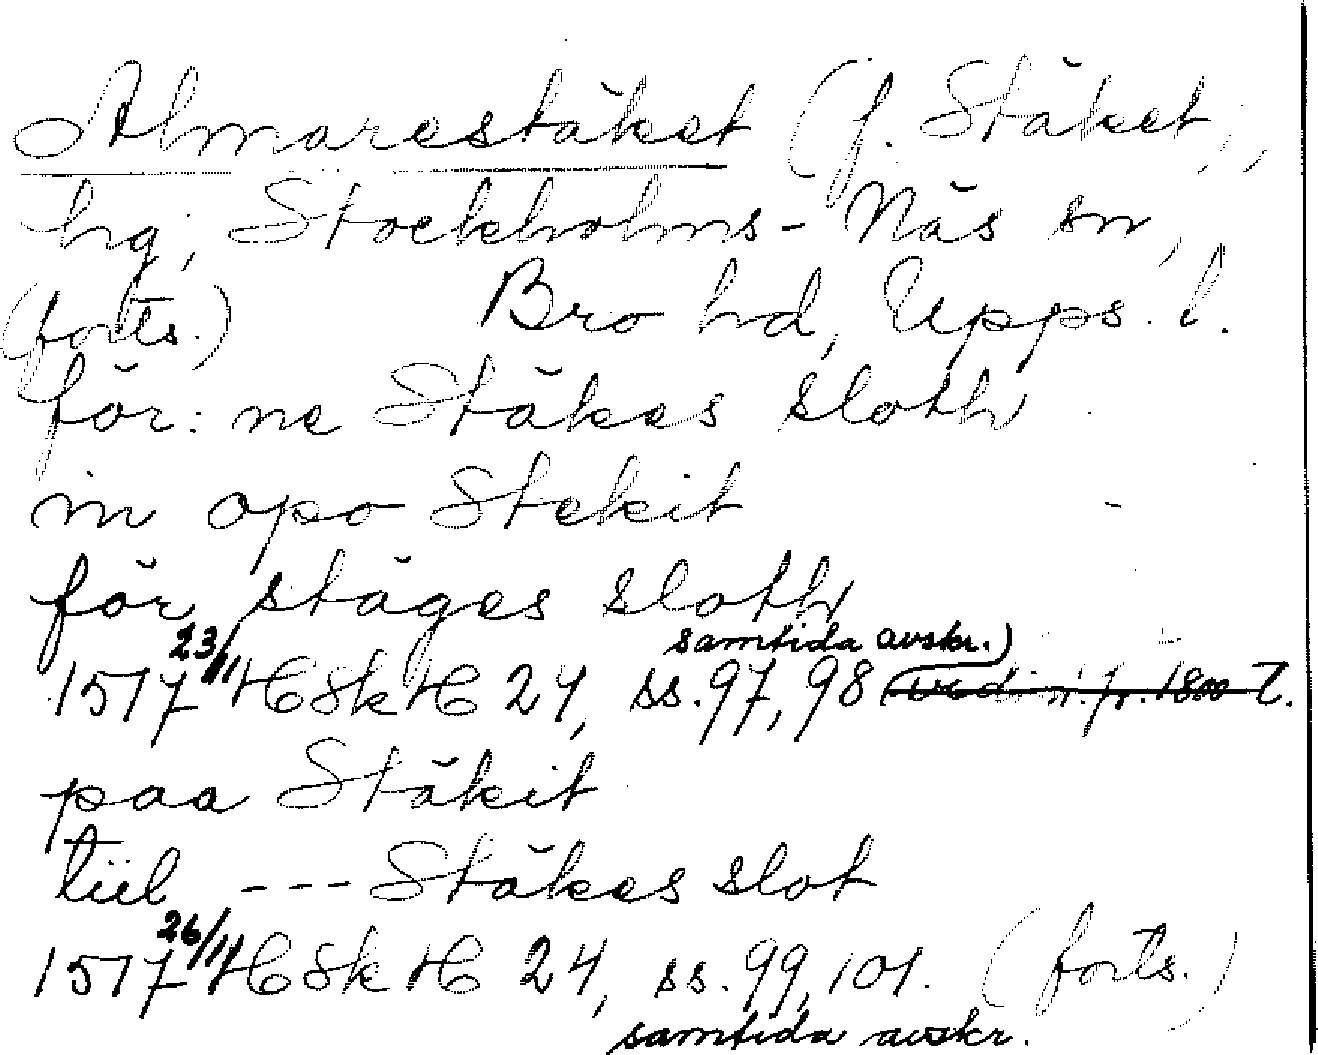 Almarestäket (f. Stäket,,
hg, Stockholms-Näs sn,
(forts.) Bro hd, Upps. l.
för: ne Stäkes sloth
in opo Stekit
för stäges sloth
samtida avskr.)
1517 23/11 HSkH 24, ss. 97, 98
paa Stäkit
tiil --- Stäkes slot
1517 26/11 HSkH 24, ss. 99, 101. (forts.)
samtida avskr.